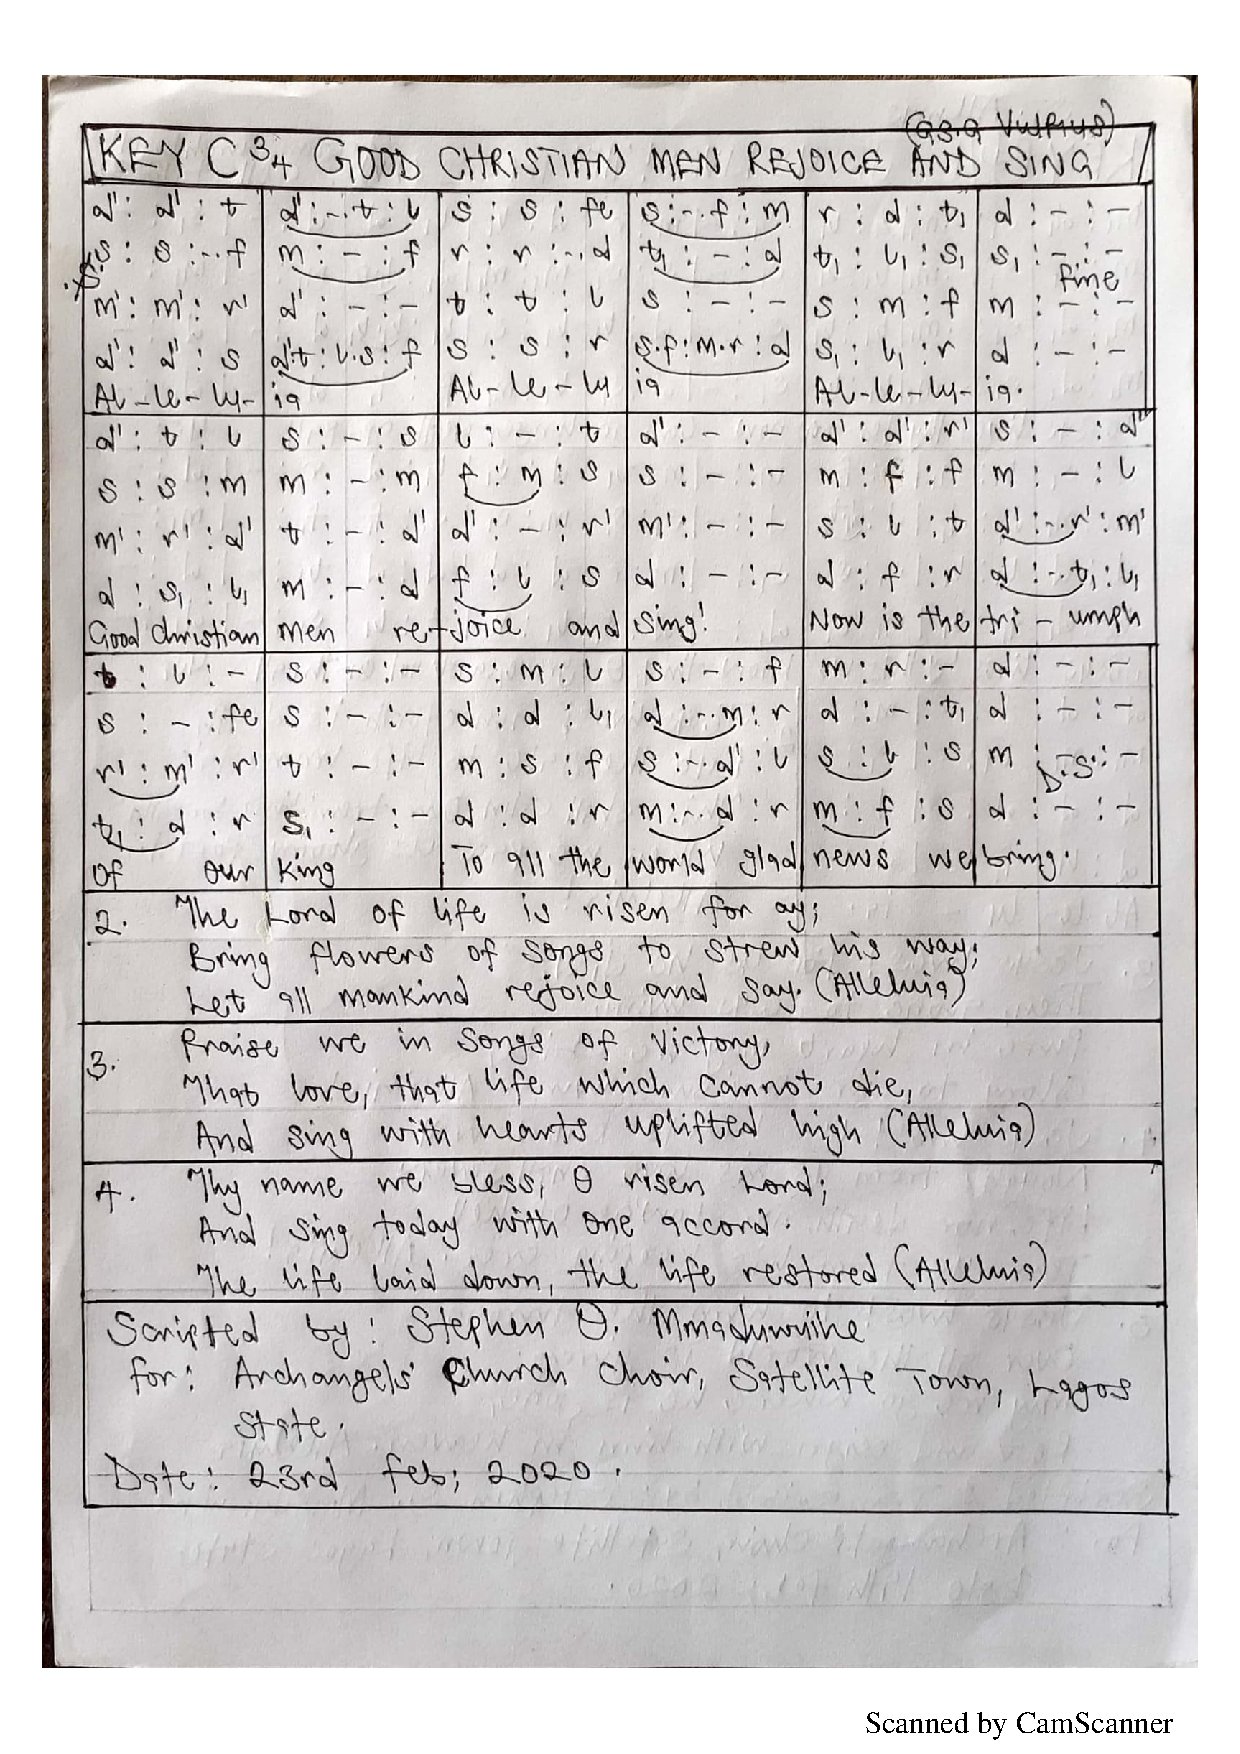 KEY C 3/4 GOOD CHRISTIAN MEN REJOICE AND SING
d' : d' : t | d' :-.t : l | s : s : fe | s :-.f : m | r : d : t₁ | d : - : -
s : s :-.f | m : - : f | r : r :-.d | t₁ : - : d | t₁ : l₁ : s₁ | s₁ : - : -
fine
m' : m' : r' | d' : - : - | t : t : l | s : - : - | s : m : f | m : - : -
d' : d' : s | d'.t : l.s : f | s : s : r | s.f : m.r : d | s₁ : l₁ : r | d : - : -
Al-le-lu- | ia | Al-le-lu | ia | Al-le-lu- | ia.
d' : t : l | s : - : s | l : - : t | d' : - : - | d' : d' : r' | s : - : d'
s : s : m | m : - : m | f : m : s | s : - : - | m : f : f | m : - : l
m' : r' : d' | t : - : d' | d' : - : r' | m' : - : - | s : l : t | d' :-.r' : m'
d : s₁ : l₁ | m : - : d | f : l : s | d : - : - | d : f : r | d :-.t₁ : l₁
Good christian | men re- | joice and | sing! | Now is the | tri - umph
t : l : - | s : - : - | s : m : l | s : - : f | m : r : - | d : - : -
s : - : fe | s : - : - | d : d : l₁ | d :-.m : r | d : - : t₁ | d : - : -
r' : m' : r' | t : - : - | m : s : f | s :-.d' : l | s : l : s | m : - : -
D.S.
t₁ : d : r | s₁ : - : - | d : d : r | m :-.d : r | m : f : s | d : - : -
Of our | king | To all the | world glad | news we | bring.
2. The Lord of life is risen for ay;
Bring flowers of songs to strew his way;
Let all mankind rejoice and say. (Alleluia)
3. Praise we in songs of victory,
That love, that life which cannot die,
And sing with hearts uplifted high (Alleluia)
4. Thy name we bless, O risen Lord;
And sing today with one accord.
The life laid down, the life restored (Alleluia)
Scripted by: Stephen O. Mmaduwuihe
for: Archangels' Church Choir, Satellite Town, Lagos
State.
Date: 23rd feb; 2020.
Scanned by CamScanner